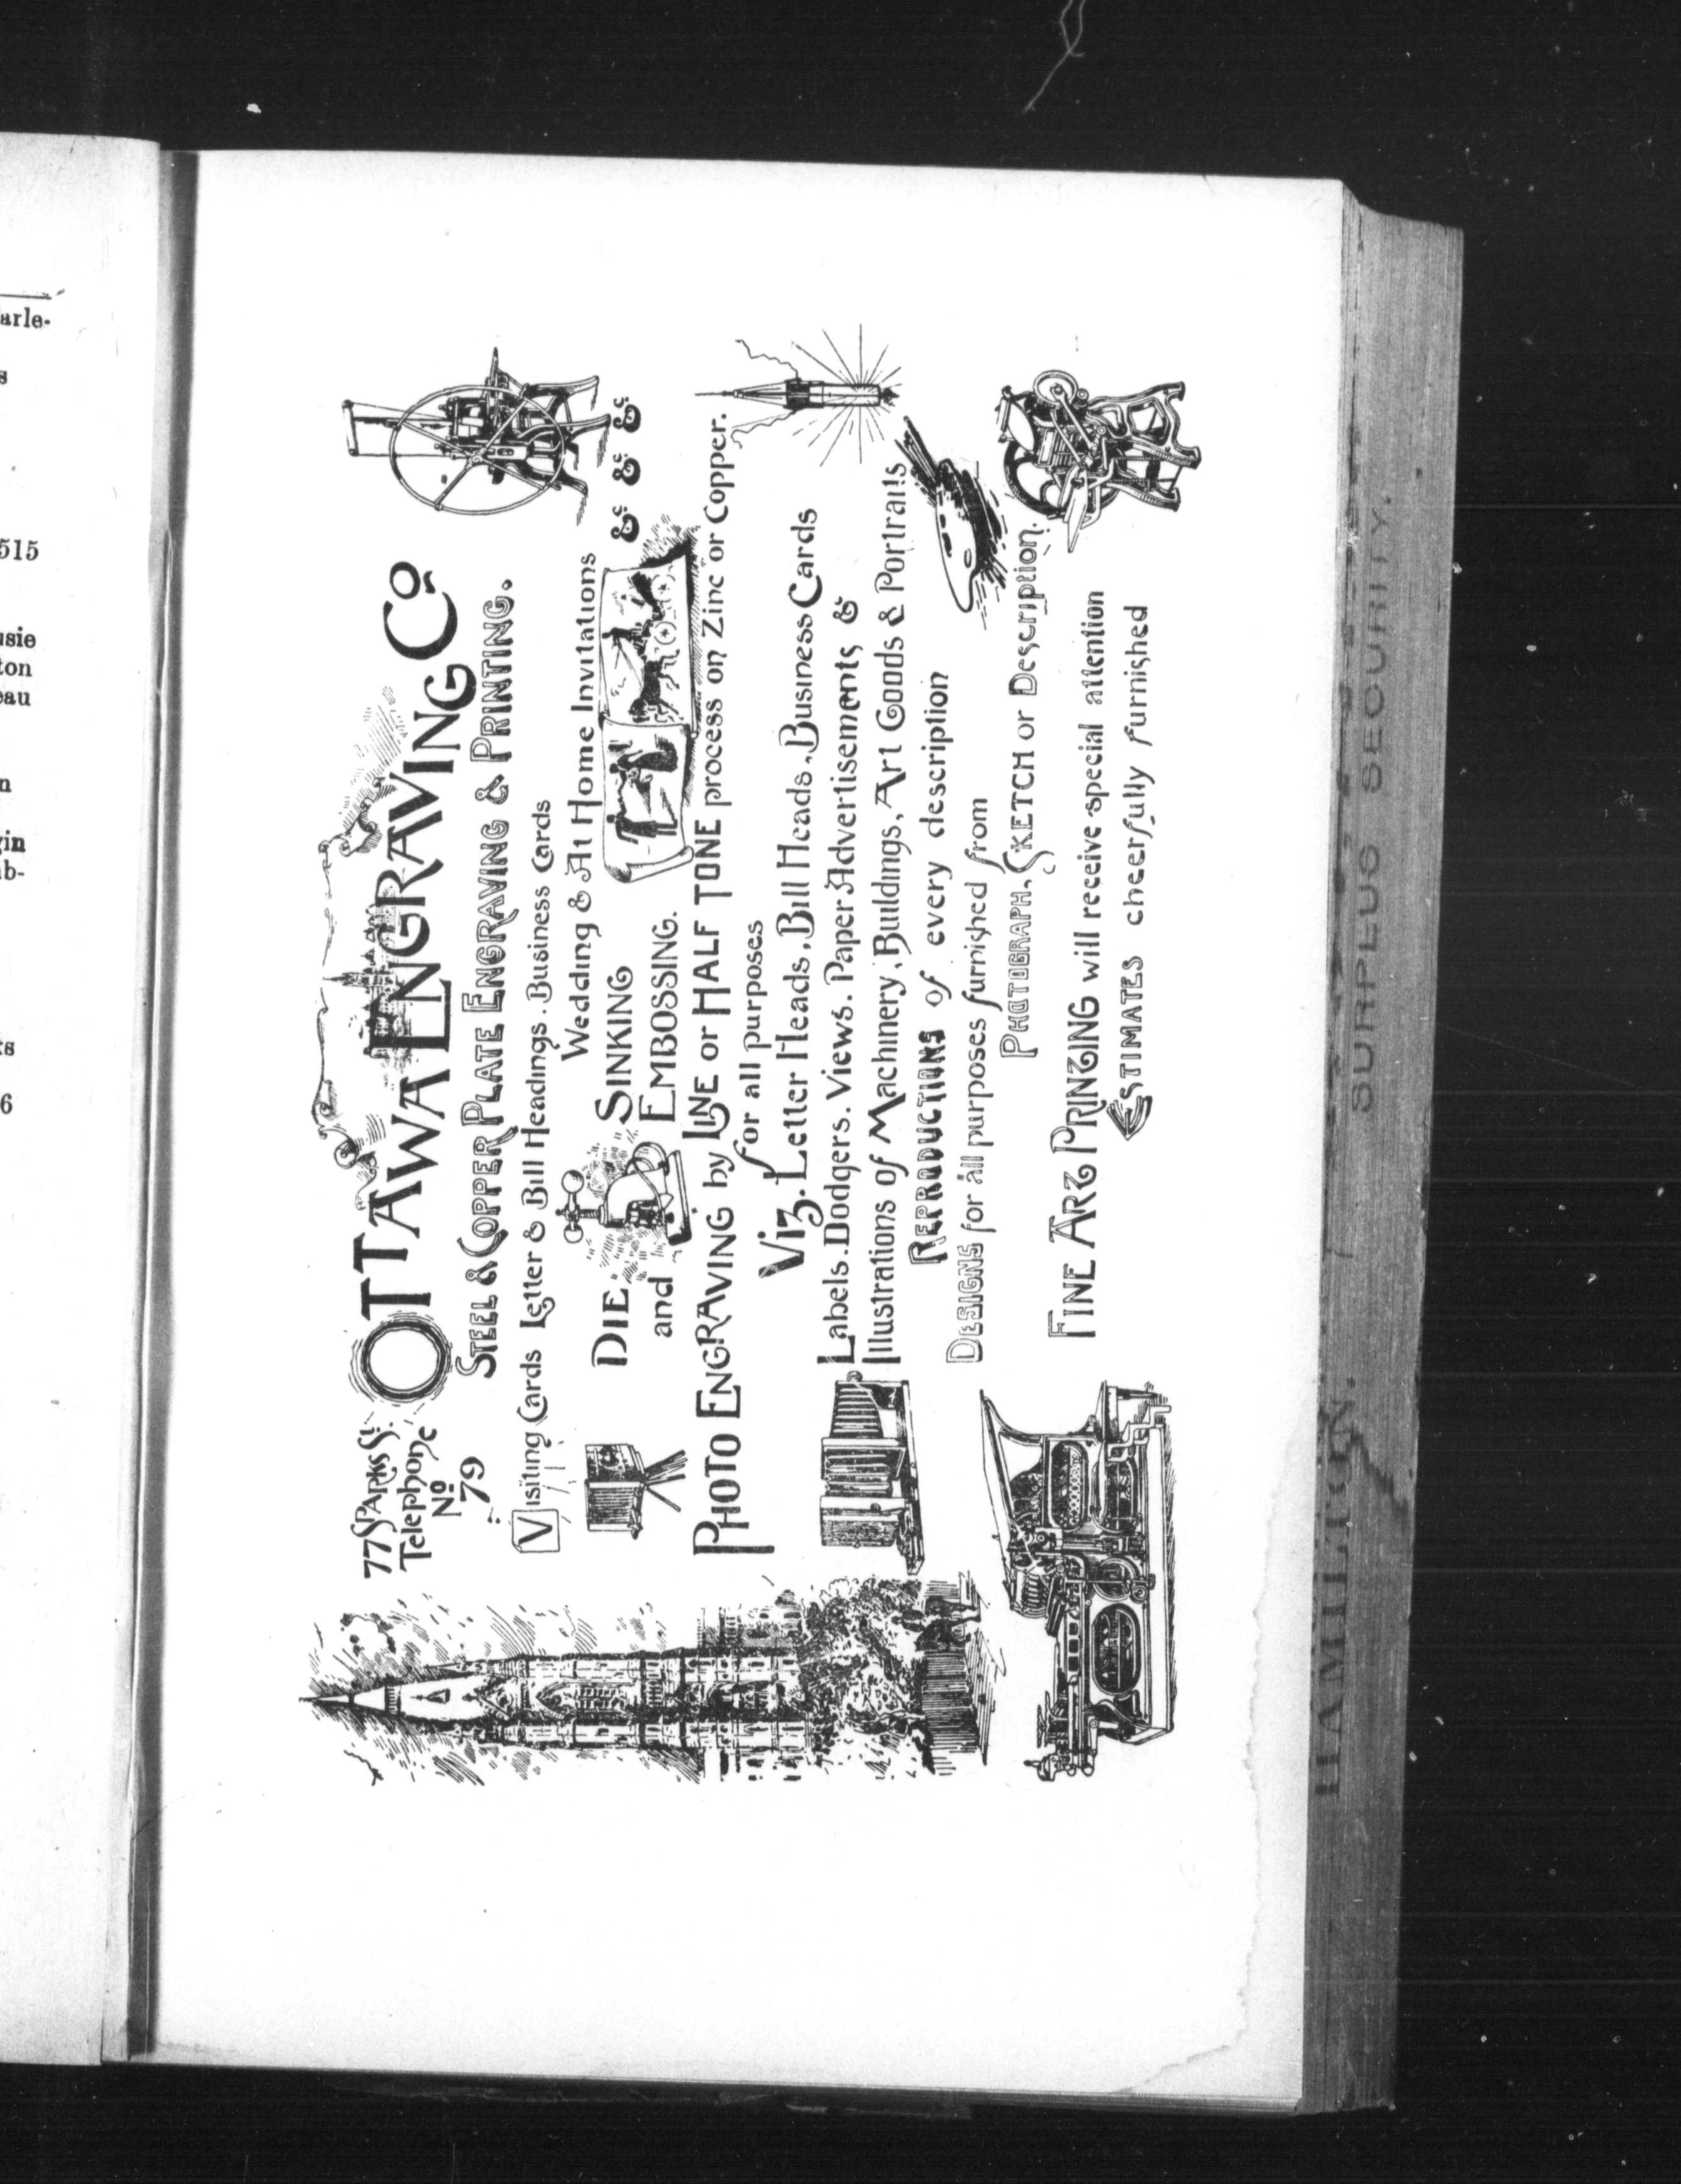 arle-
s
515
usie
ton
eau
n
gin
ub-
ts
6
77 SPARKS St.
Telephone
No
79
OTTAWA ENGRAVING Co
STEEL & COPPER PLATE ENGRAVING & PRINTING.
Visiting Cards Letter & Bill Headings. Business Cards
Wedding & At Home Invitations
&c &c &c
DIE SINKING
and EMBOSSING.
PHOTO ENGRAVING by LINE or HALF TONE process on Zinc or Copper.
for all purposes
Viz. Letter Heads, Bill Heads, Business Cards
Labels. Dodgers. Views. Paper Advertisements &
Illustrations of Machinery, Buildings, Art Goods & Portraits
REPRODUCTIONS of every description
DESIGNS for all purposes furnished from
PHOTOGRAPH, SKETCH or Description.
FINE ART PRINTING will receive special attention
ESTIMATES cheerfully furnished
SURPLUS SECURITY.
HAMILTON.